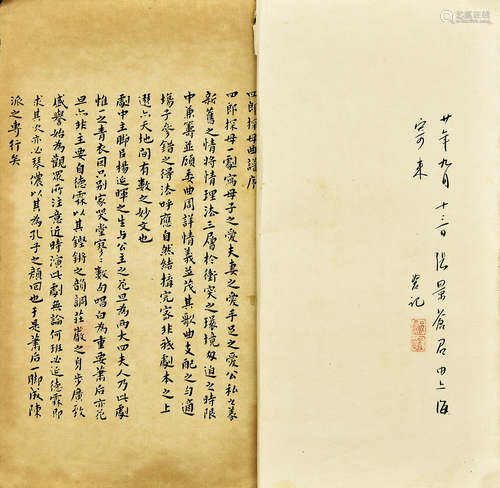 廿年九月十三日張景蒼君由上海
寄来
芸記
四郎探母曲譜序
四郎探母一劇寫母子之愛夫妻之愛手足之愛公私之義
新舊之情将情理法三層於衝突之環境匆迫之時限
中兼籌並顧委曲周詳情義並茂其歌曲支配之勻適
場子参錯之得法呼應自然結搆完密非我劇本之上
選六天地間有數之妙文也
劇中主脚臣楊延暉之生与公主之花旦為兩大四夫人乃此劇
惟一之青衣因只别家哭堂寥寥數句唱白為重要蕭后亦花
旦六非主要自德霖以其鏗鏘之韻調莊嚴之身步廣欽
盛譽始為觀眾所注意近時演此劇無論何班必延德霖即
求其欠亦必琴儂以其為孔子之顏回也于是蕭后一脚成陳
派之専行矣